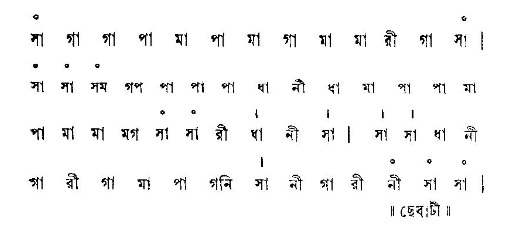 সা গা গা পা মা পা মা গা মা মা রী গা সা |
সা সা সম গপ পা পা পা ধা নী ধা মা পা পা মা
পা মা মা মগ সা সা রী ধা নী সা | সা সা ধা নী
গা রী গা মা পা গনি সা নী গা রী নী সা সা |
॥ ছেবাটী ॥